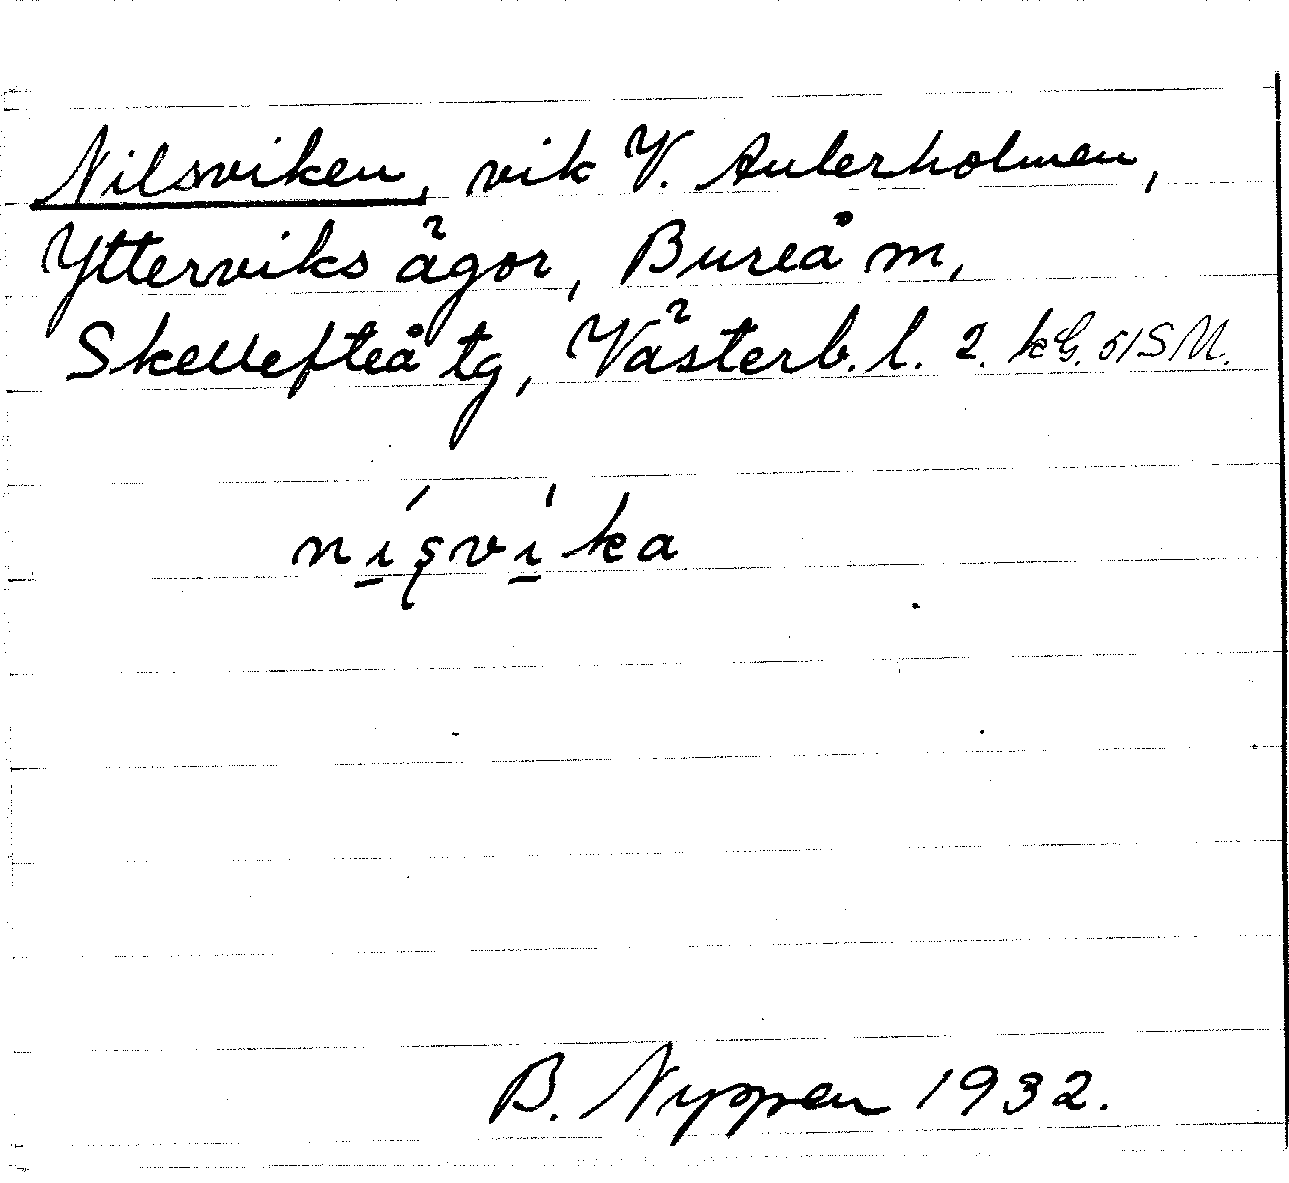 Nilsviken, vik V. Aulerholmen,
Ytterviks ägor, Bureå m,
Skellefteå tg, Västerb. l. 2. kG. 51SM.
ni̱ʂvi̱ka
B. Nyppen 1932.